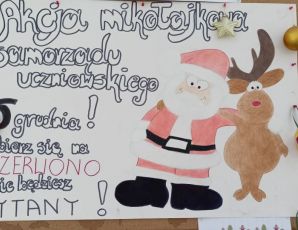 Akcja mikołajkowa
samorządu
uczniowskiego
6 grudnia!
bierz się na
ZERWONO
nie będziesz
PYTANY!